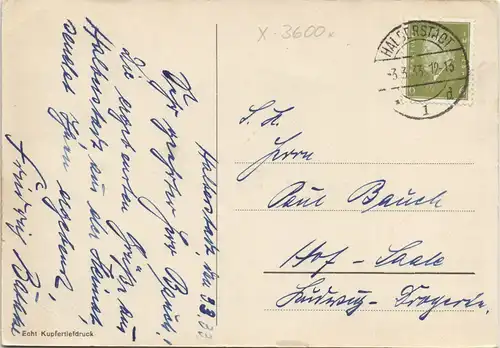 X-3600x
HALBERSTADT
3.3.33. 12-13
1 d
Halberstadt, den 3.3.33
Sehr geehrter Herr Bauch,
Die ergebensten Grüße aus
Halberstadt aus der Heimat
sendet Ihnen ergebenst
S. H.
Herrn
Paul Bauch
Hof - Saale
Ludwigs-Drogerie.
Echt Kupfertiefdruck